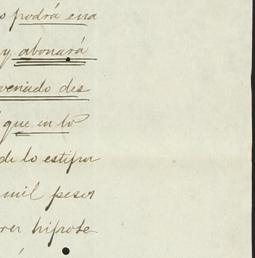 o podrá ena
y abonará
venido des
que en lo
de lo estipu
mil pesos
rer hipote